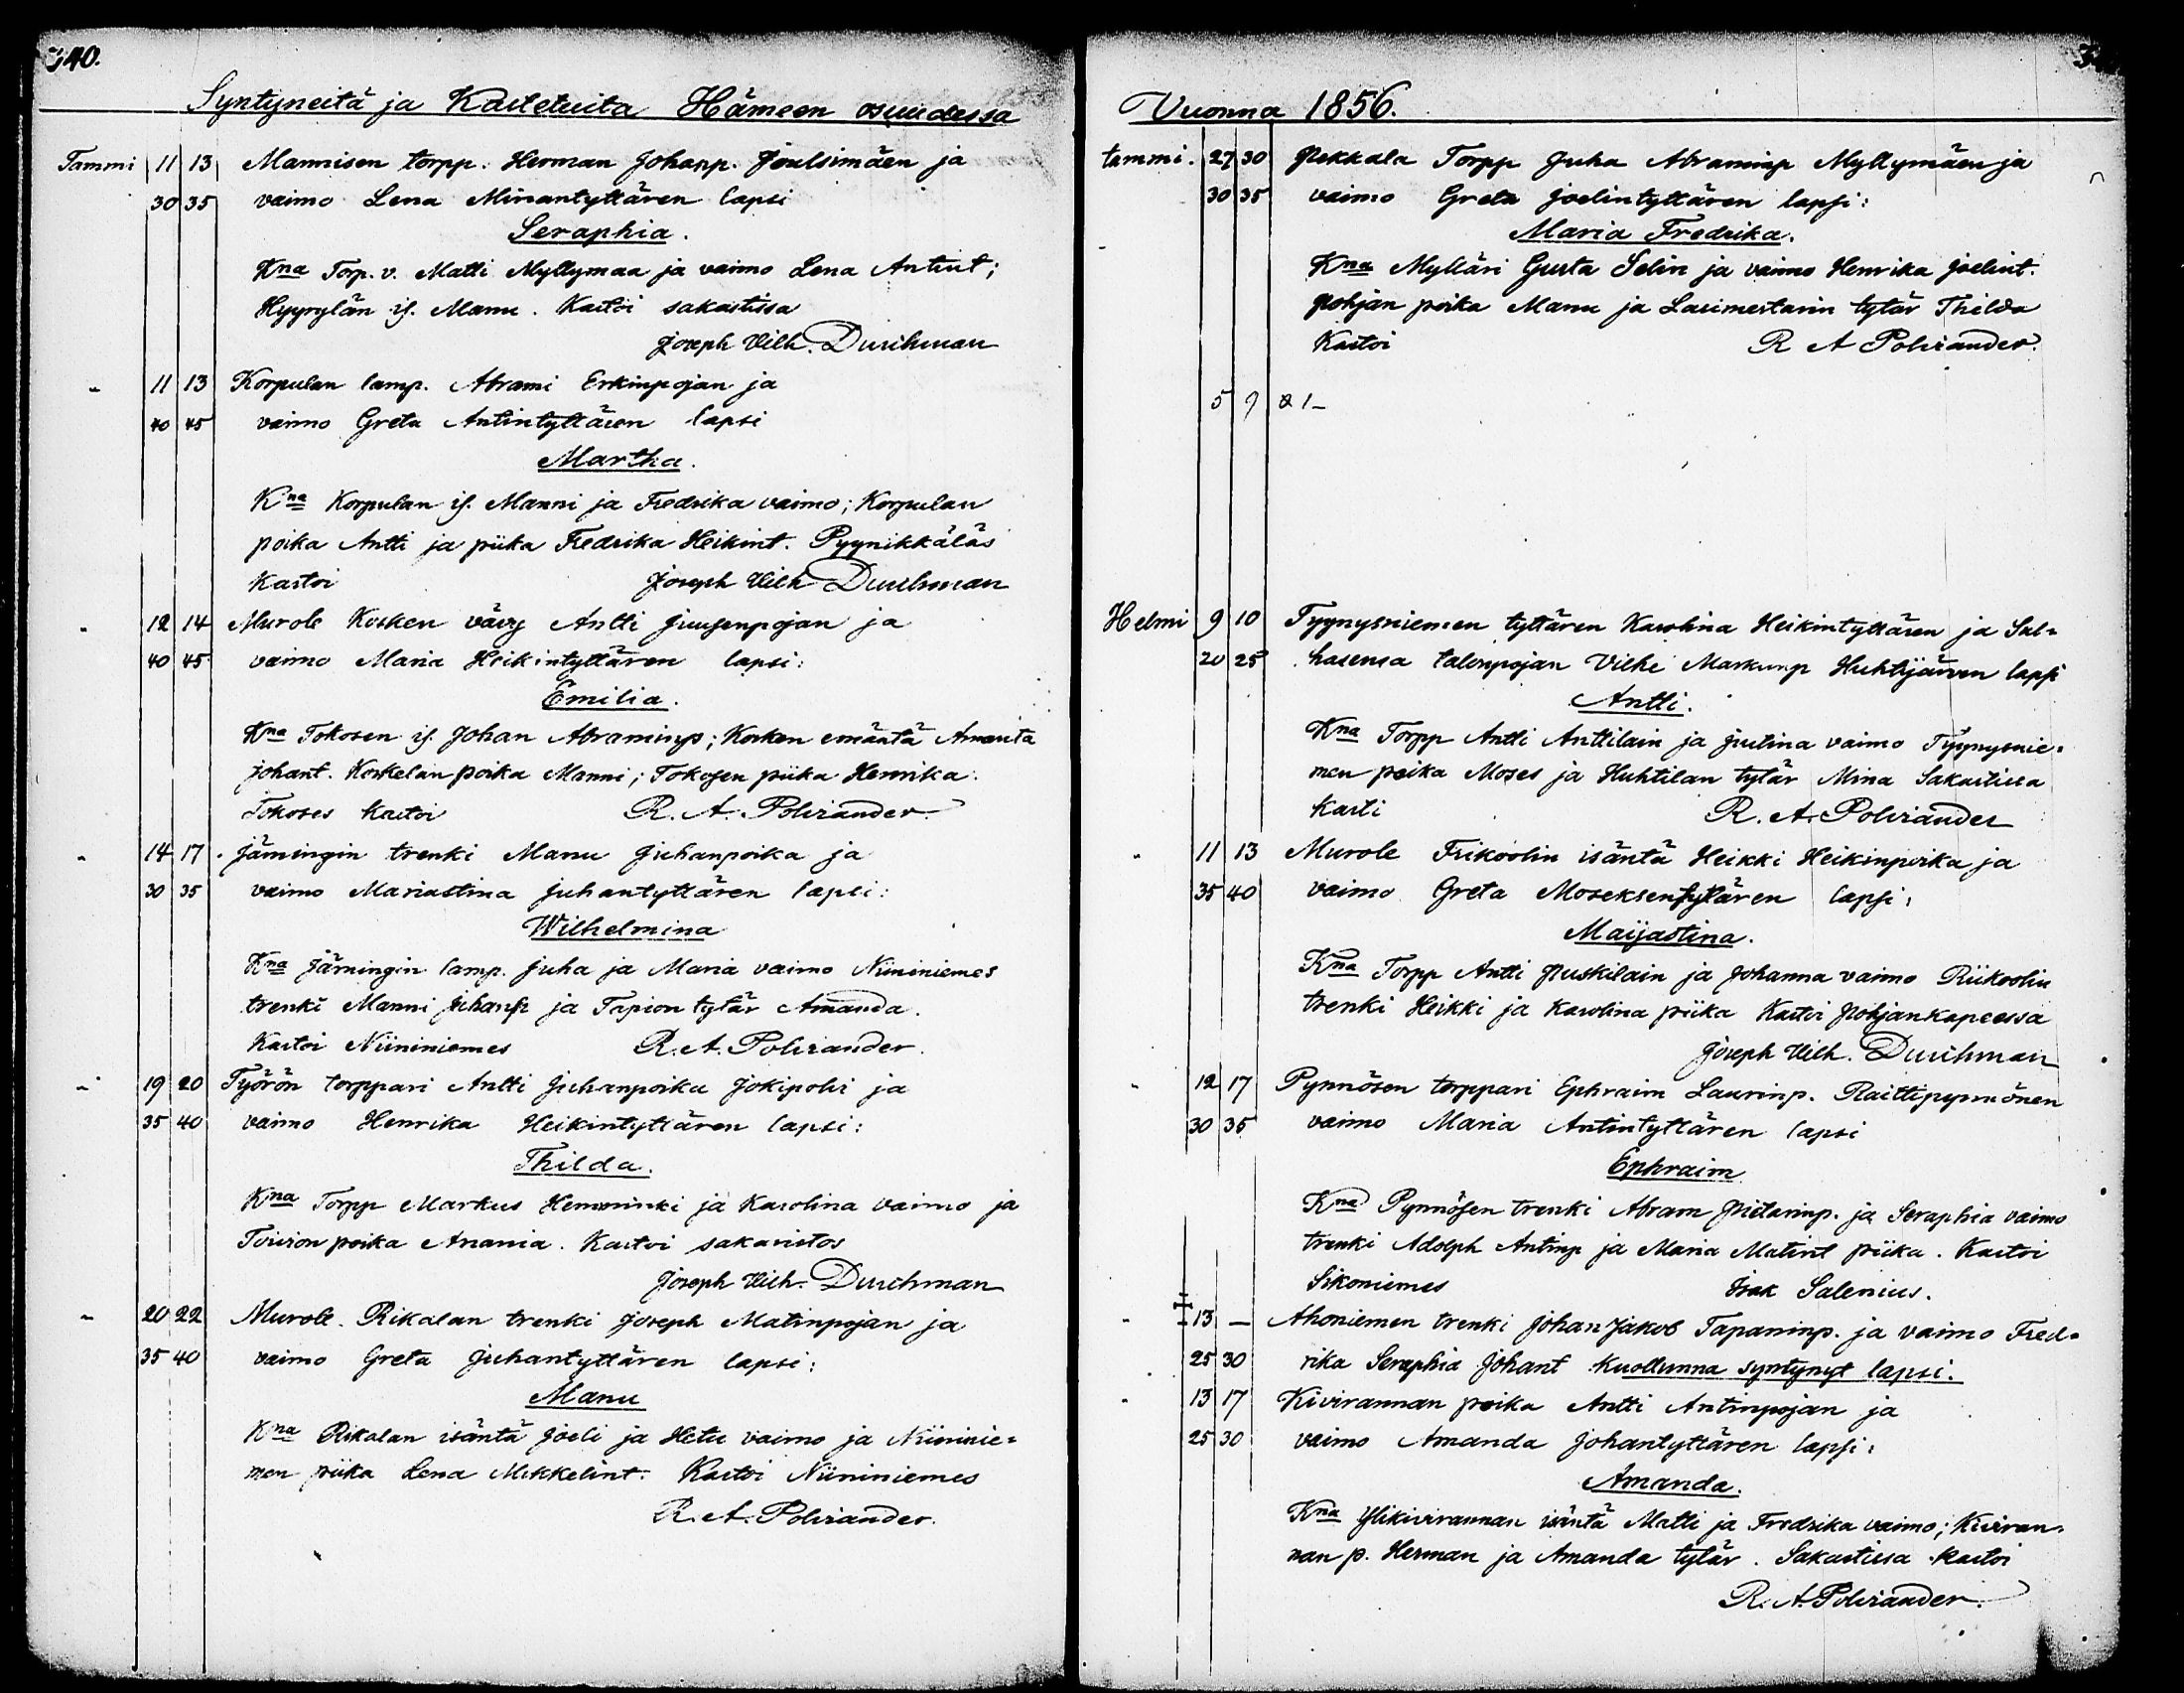 340.
Syntyneitä ja Kastetuita Hämeen osuudessa
Tammi 11 13 Mannisen torpp. Herman Johanp. Joulsimäen ja
30 35 vaimo Lena Minantyttären lapsi
Seraphia.
Kna Torp. v. Matti Myllymaa ja vaimo Lena Antint;
Hyyrylän is. Manu. Kastoi sakastissa
Joseph Vilh. Durchman
" 11 13 Korpulan lamp. Abrami Erkinpojan ja
40 45 vaimo Greta Antintyttären lapsi
Martha.
Kna Korpulan is. Manni ja Fredrika vaimo; Korpulan
poika Antti ja piika Fredrika Heikint. Pyynikkäläs
Kastoi Joseph Vilh Durchman
" 12 14 Murole Kosken vävy Antti Juusenpojan ja
40 45 vaimo Maria Heikintyttären lapsi:
Emilia.
Kna Tokosen is. Johan Abraminp; Kosken emäntä Amanta
Johant. Koskelan poika Manni; Tokosen piika Henrika.
Tokoses kastoi R. A. Polviander.
" 14 17 Jämingin trenki Manu Juhanpoika ja
30 35 vaimo Mariastina Juhantyttären lapsi:
Wilhelmina
Kna Jämingin lamp. Juha ja Maria vaimo Niininiemes
trenki Manni Juhanp ja Tapion tytär Amanda.
Kastoi Niininiemes R. A. Polviander.
" 19 20 Työrön torppari Antti Juhanpoika Jokipolvi ja
35 40 vaimo Henrika Heikintyttären lapsi:
Thilda.
Kna Torpp Markus Hemminki ja Karolina vaimo ja
poika Anania. Kastoi sakaristos
Joseph Vilh. Durchman
" 20 22 Murole. Rikalan trenki Joseph Matinpojan ja
35 40 vaimo Greta Juhantyttären lapsi:
Manu
Kna Rikalan isäntä Joeli ja Hetu vaimo ja Niininie=
men piika Lena Mikkelint. Kastoi Niininiemes
R. A. Polviander.
Vuonna 1856.
tammi. 27 30 Pekkala Torpp Juha Abraminp Myllymäen ja
30 35 vaimo Greta Joelintyttären lapsi:
Maria Fredrika.
Kna Mylläri Gusta Selin ja vaimo Henrika Joelint.
Pohjan poika Manu ja Lasimestarin tytär Thilda
Kastoi R A Polviander.
5
Helmi 9 10 Tyynysniemen tyttären Karolina Heikintyttären ja Sul=
20 25 hasensa talonpojan Vilhe Markunp Huhtijärven lapsi
Antti.
Kna Torpp Antti Anttilain ja Justina vaimo Tyynysnie=
men poika Moses ja Huhtilan tytär Mina Sakastissa
Kasti R. A. Polviander
" 11 13 Murole Frikoolin isäntä Heikki Heikinpoika ja
35 40 vaimo Greta Moseksentyttären lapsi:
Maijastina.
Kna Torpp Antti Puskilain ja Johanna vaimo Riikoolin
trenki Heikki ja Karolina piika Kastoi Pohjankapeessa
Joseph Vilh. Durchman
" 12 17 Pynnösen torppari Ephraim Laurinp. Raittipynnönen
30 35 vaimo Maria Antintyttären lapsi
Ephraim
Kna Pynnösen trenki Abram Pietarinp. ja Seraphia vaimo
trenki Adolph Antinp ja Maria Matint piika. Kastoi
Sikoniemes Isak Salenius.
" 13 — Ahoniemen trenki Johan Jakob Tapaninp. ja vaimo Fred=
25 30 rika Seraphia Johant Kuollunna syntynyt lapsi.
" 13 17 Kivirannan poika Antti Antinpojan ja
25 30 vaimo Amanda Johantyttären lapsi:
Amanda.
Kna Ylikivirannan isäntä Matti ja Fredrika vaimo; Kiviran=
nan p. Herman ja Amanda tytär. Sakastissa kastoi
R. A. Polviander.